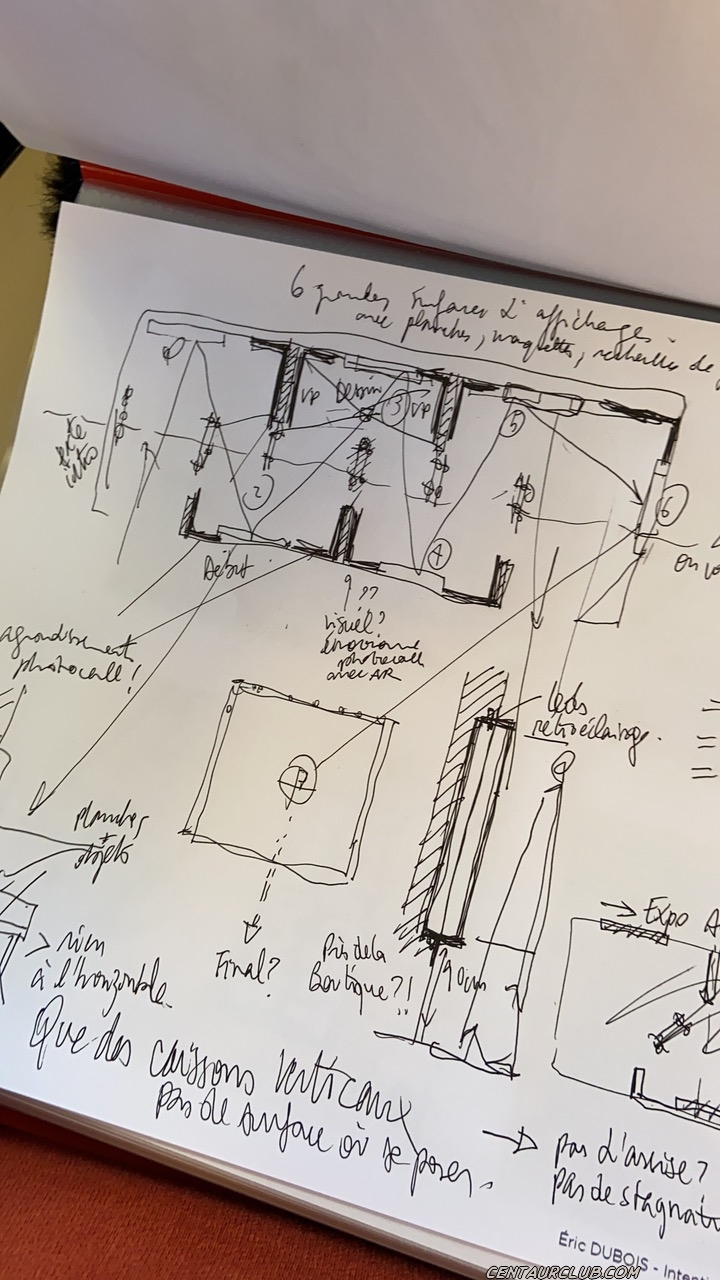 6 grandes surfaces d'affichages
avec planches, maquettes, recherches de
VP
Dessin
VP
3
5
6
texte
intro
2
4
Début
On vo
???
visuel?
photocall
avec AR
agrandissements
photocall!
Leds
retroéclairage.
planches
+
objets
Expo A
> rien
à l'horizontale
Final?
Près de la
Boutique?!
90cm
Que des caissons verticaux
pas de surface où se poser.
→ pas d'assise?
pas de stagnati
Éric DUBOIS - Intent
CENTAURCLUB.COM